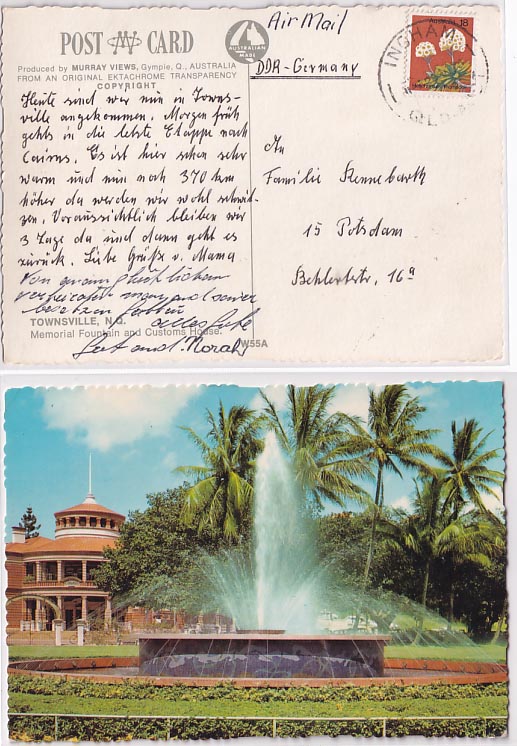 POST CARD
AUSTRALIAN MADE
Produced by MURRAY VIEWS, Gympie, Q., AUSTRALIA
FROM AN ORIGINAL EKTACHROME TRANSPARENCY
COPYRIGHT
Heute sind wir nun in Towns-
ville angekommen. Morgen früh
gehts in die letzte Etappe nach
Cairns. Es ist hier schon sehr
warm und nun noch 370 km
höher da werden wir wohl schwit-
zen. Voraussichtlich bleiben wir
3 Tage da und dann geht es
zurück. Liebe Grüße v. Mama
alles Gute
und Norah
TOWNSVILLE, N.Q.
Memorial Fountain and Customs House.
W55A
Air Mail
DDR-Germany
Australia 18
INGHAM
QLD
An
Familie Rennebarth
15 Potsdam
Behlertstr. 16a